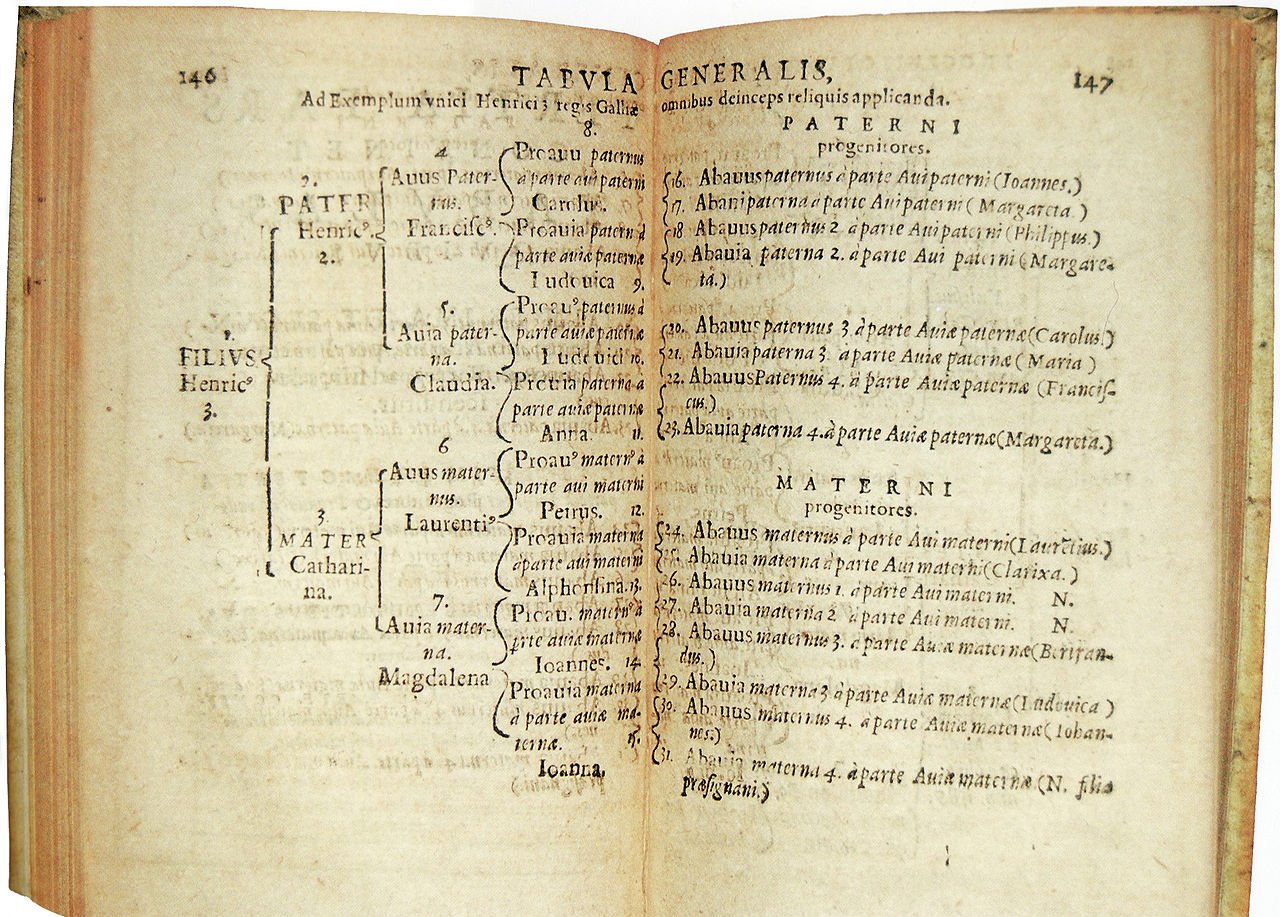 146
TABVLA
Ad Exemplum vnici Henrici 3 regis Galliæ
2.
PATER
Henricꝰ.
2.
1.
FILIVS
Henricꝰ
3.
3.
MATER
Cathari-
na.
4
Auus Pater-
nus.
Franciscꝰ.
5.
Auia pater-
na.
Claudia.
6
Auus mater-
nus.
Laurentiꝰ
7.
Auia mater-
na.
Magdalena
8.
Proauu paternus
à parte aui paterni
Carolus.
Proauia patern à
parte auiæ paternæ
Ludouica 9.
Proauꝰ paternus à
parte auiæ paternæ
Ludouici 10.
Proauia paterna à
parte auiæ paternæ
Anna. 11.
Proauꝰ maternꝰ à
parte aui materni
Petrus. 12.
Proauia materna
à parte aui materni
Alphonsina. 13.
Proau. maternꝰ à
parte auiæ maternæ
Ioannes. 14.
Proauia materna
à parte auiæ ma-
ternæ. 15.
Ioanna.
GENERALIS, 147
omnibus deinceps reliquis applicanda.
PATERNI
progenitores.
16. Abauus paternus à parte Aui paterni (Ioannes.)
17. Abani paterna à parte Aui paterni (Margareta.)
18 Abauus paternus 2. à parte Aui paterni (Philippus.)
19. Abauia paterna 2. à parte Aui paterni (Margare-
ta.)
20. Abauus paternus 3 à parte Auiæ paternæ (Carolus.)
21. Abauia paterna 3. à parte Auiæ paternæ (Maria)
22. Abauus Paternus 4. à parte Auiæ paternæ (Francis-
cus.)
23. Abauia paterna 4. à parte Auiæ paternæ (Margareta.)
MATERNI
progenitores.
24. Abauus maternus à parte Aui materni (Laurētius.)
25. Abauia materna à parte Aui materni (Clarixa.)
26. Abauus maternus 1. à parte Aui materni. N.
27. Abauia materna 2 à parte Aui materni. N.
28. Abauus maternus 3. à parte Auiæ maternæ (Bertran-
dus.)
29. Abauia materna 3 à parte Auiæ maternæ (Ludouica)
30. Abauus maternus 4. à parte Auiæ maternæ (Iohan-
nes.)
31. Abauia materna 4. à parte Auiæ maternæ (N. filia
præsignani.)